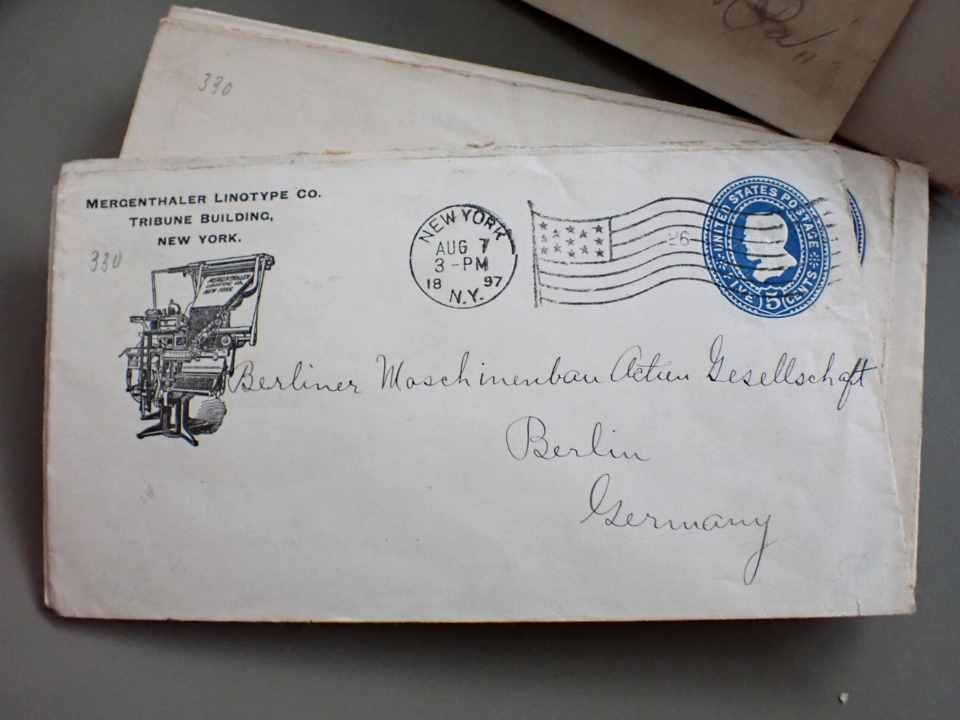 330
MERGENTHALER LINOTYPE CO.
TRIBUNE BUILDING,
NEW YORK.
330
MERGENTHALER
LINOTYPE CO.
NEW YORK
NEW YORK
AUG 7
3-PM
18 97
N.Y.
26
UNITED STATES POSTAGE
FIVE 5 CENTS
Berliner Maschinenbau Actien Gesellschaft
Berlin
Germany